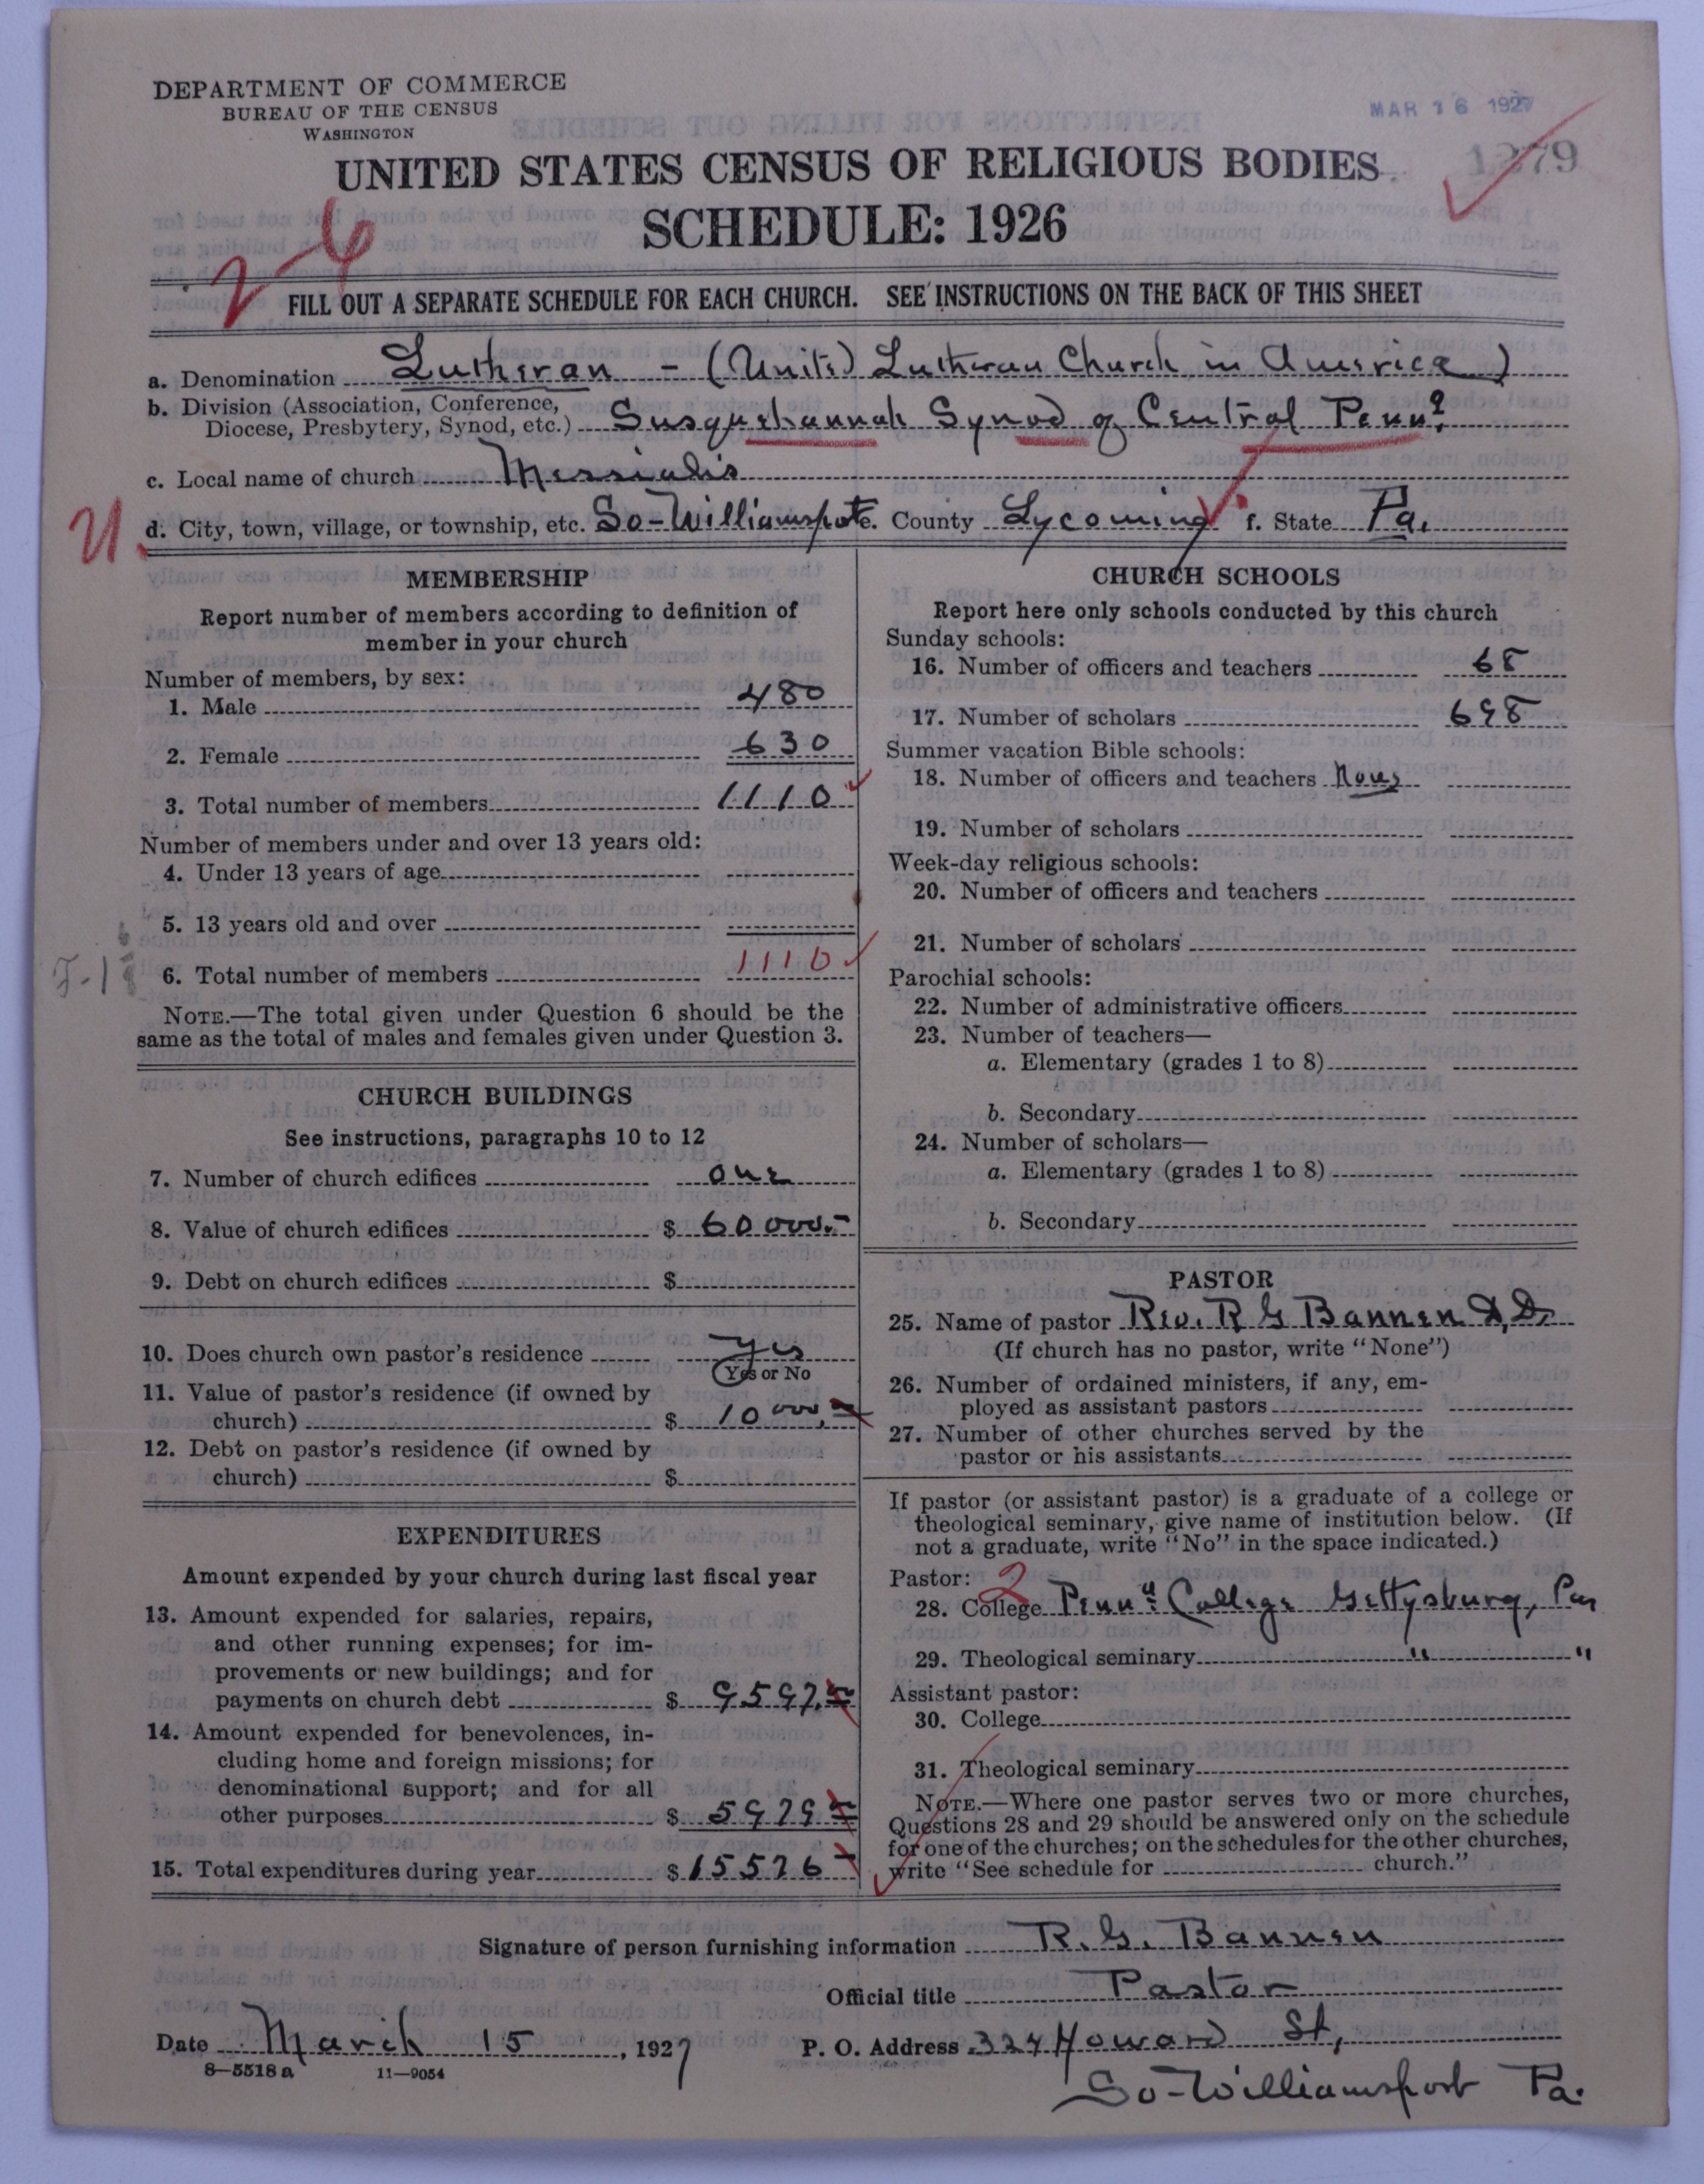 DEPARTMENT OF COMMERCE
BUREAU OF THE CENSUS
WASHINGTON
MAR 16 1927
UNITED STATES CENSUS OF RELIGIOUS BODIES
SCHEDULE: 1926
2-6
FILL OUT A SEPARATE SCHEDULE FOR EACH CHURCH. SEE INSTRUCTIONS ON THE BACK OF THIS SHEET
a. Denomination Lutheran - (United Lutheran Church in America)
b. Division (Association, Conference,
Diocese, Presbytery, Synod, etc.) Susquehannah Synod of Central Penna.
c. Local name of church Messiah's
d. City, town, village, or township, etc. So-Williamsport e. County Lycoming f. State Pa.
MEMBERSHIP
Report number of members according to definition of
member in your church
Number of members, by sex:
1. Male 480
2. Female 630
3. Total number of members 1110
Number of members under and over 13 years old:
4. Under 13 years of age
5. 13 years old and over
6. Total number of members 1110
NOTE.—The total given under Question 6 should be the
same as the total of males and females given under Question 3.
CHURCH BUILDINGS
See instructions, paragraphs 10 to 12
7. Number of church edifices one
8. Value of church edifices $ 60000.-
9. Debt on church edifices $
10. Does church own pastor's residence yes
Yes or No
11. Value of pastor's residence (if owned by
church) $ 10000.
12. Debt on pastor's residence (if owned by
church) $
EXPENDITURES
Amount expended by your church during last fiscal year
13. Amount expended for salaries, repairs,
and other running expenses; for im-
provements or new buildings; and for
payments on church debt $ 9597.
14. Amount expended for benevolences, in-
cluding home and foreign missions; for
denominational support; and for all
other purposes $ 5979
15. Total expenditures during year $ 15576
CHURCH SCHOOLS
Report here only schools conducted by this church
Sunday schools:
16. Number of officers and teachers 68
17. Number of scholars 698
Summer vacation Bible schools:
18. Number of officers and teachers None
19. Number of scholars
Week-day religious schools:
20. Number of officers and teachers
21. Number of scholars
Parochial schools:
22. Number of administrative officers
23. Number of teachers—
a. Elementary (grades 1 to 8)
b. Secondary
24. Number of scholars—
a. Elementary (grades 1 to 8)
b. Secondary
PASTOR
25. Name of pastor Rev. R G Bannen D.D.
(If church has no pastor, write "None")
26. Number of ordained ministers, if any, em-
ployed as assistant pastors
27. Number of other churches served by the
pastor or his assistants
If pastor (or assistant pastor) is a graduate of a college or
theological seminary, give name of institution below. (If
not a graduate, write "No" in the space indicated.)
Pastor: 2
28. College Penna. College Gettysburg, Pa
29. Theological seminary " "
Assistant pastor:
30. College
31. Theological seminary
NOTE.—Where one pastor serves two or more churches,
Questions 28 and 29 should be answered only on the schedule
for one of the churches; on the schedules for the other churches,
write "See schedule for church."
Signature of person furnishing information R. G. Bannen
Official title Pastor
Date March 15, 1927 P. O. Address 324 Howard St,
8—5518a 11—9054
So-Williamsport Pa.